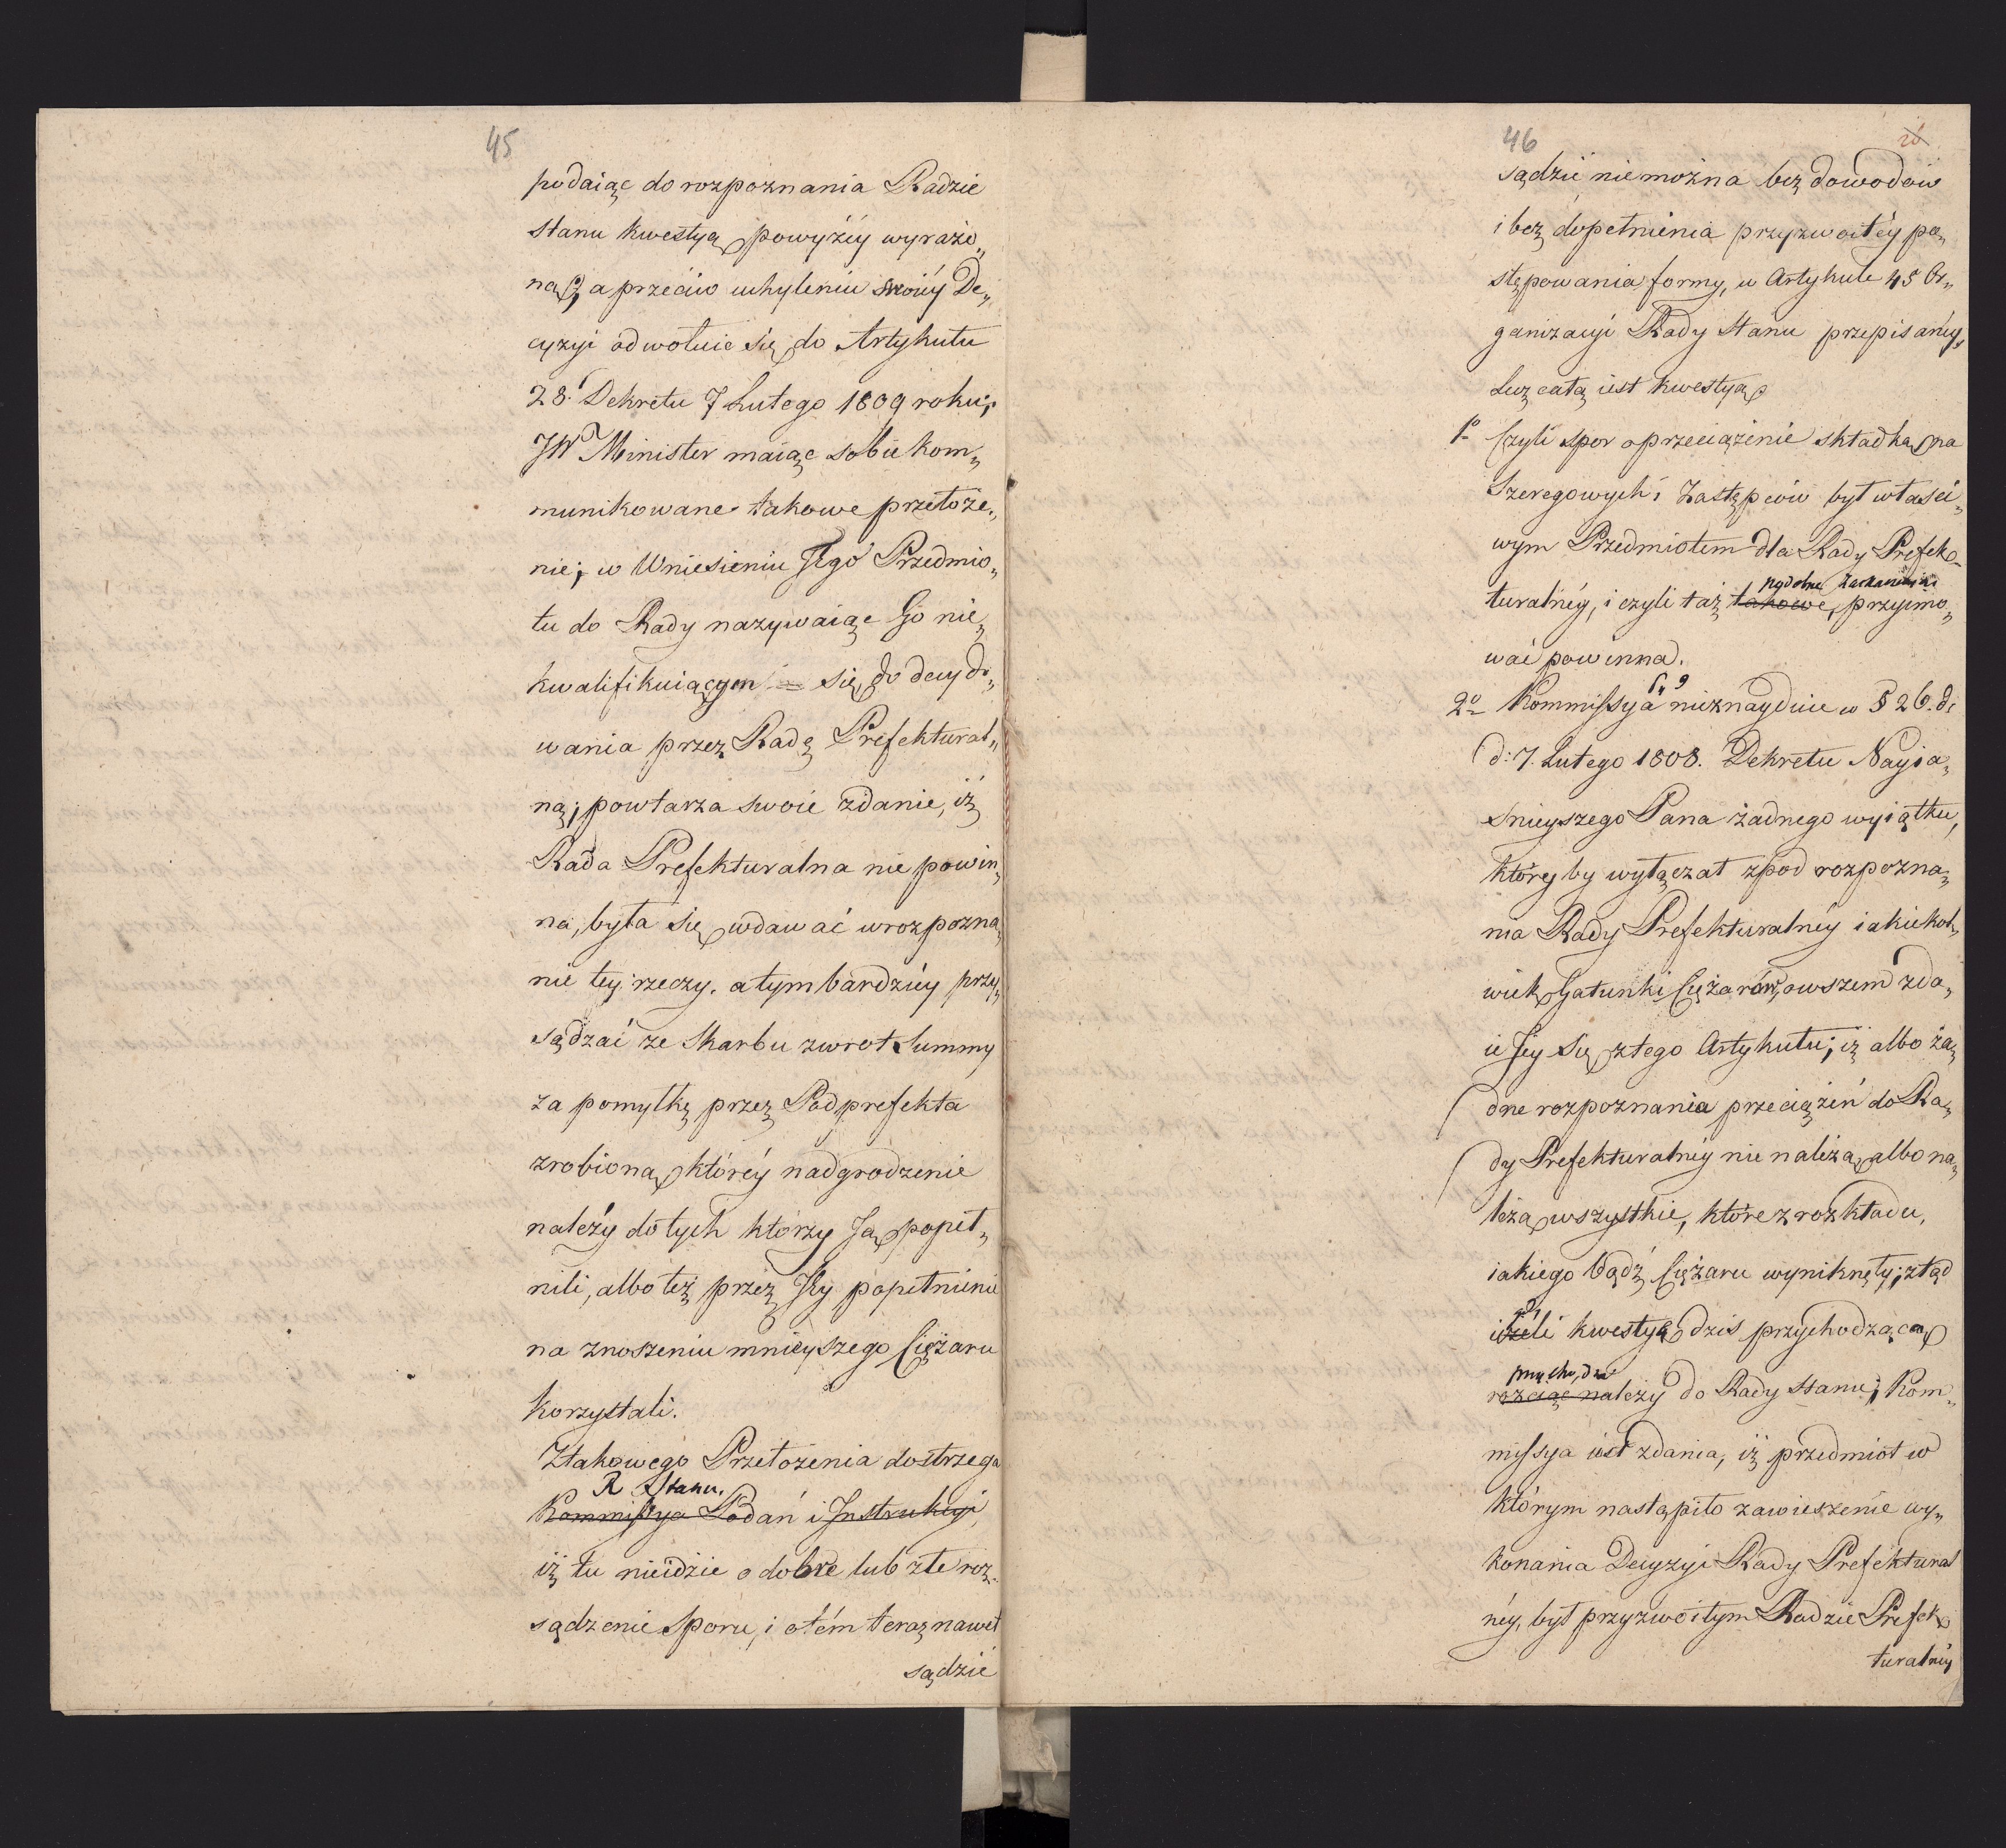 45
podaiąc do rozpoznania Radzie
Stanu kwestyą powyźéy wyrażo„
ną, a przeciw uchyleniu swoiéy De„
cyzyi odwołuie się do Artykułu
28. Dekretu 7 Lutego 1809 roku;
JW Minister maiąc sobie kom„
munikowane takowe przełoże„
nie; w Wniesieniu Jego Przedmio„
tu do Rady nazywaiąc Go nie„
kwalifikuiącym się do decydo„
wania przez Radę Prefektural„
ną; powtarza swoie zdanie, iż
Rada Prefekturalna nie powin„
na, była się wdawać w rozpozna„
nie tey rzeczy. a tym bardziéy przy„
sądzać ze Skarbu zwrot Summy
za pomyłkę przez Podprefekta
zrobioną, któréy nadgrodzenie
należy do tych którzy Ją popeł„
nili, albo też przez Jéy popełnienie
na znoszeniu mnieyszego Ciężaru
korzystali.
Ztakowego Przełożenia dostrzega
R Stanu.
Kommissya Podań i Instrukcyi,
iż tu nieidzie o dobre lub złe roz„
sądzenie Sporu, i o tém teraz nawet
sądzić
46
26
sądzić niemożna bez dowodów
i bez dopełnienia przyzwoitéy po„
stępowania formy, w Artykule 45 Or„
ganizacyi Rady Stanu przepisanéy,
Lecz całą iest kwestyą
1o Czyli spor o przeciążenie składką na
Szeregowych i Zastępców był właści„
wym Przedmiotem dla Rady Prefek„
podobne Zaskarżenia
turalnéy, i czyli taż takowe, przyimo„
wać powinna.
2o Kommissya nieznayduie w § 26. d:
d: 7. Lutego 1808. Dekretu Nayia„
śnieyszego Pana żadnego wyiątku,
któryby wyłączał zpod rozpozna„
nia Rady Prefekturalnéy iakiekol„
wiek Gatunki Ciężarów, owszem zda„
ie Jey się z tego Artykułu; iż albo ża„
dne rozpoznania przeciążeń do Ra„
dy Prefekturalnéy nie należą, albo na„
leżą wszystkie, które z rozkładu,
iakiego bądź Ciężaru wyniknęły; ztąd
ieżeli kwestyą dziś przychodzącą
należy do Rady Stanu; Kom„
missya iest zdania, iż przedmiot w
którym nastąpiło zawieszenie wy„
konania Decyzyi Rady Prefektural
néy, był przyzwoitym Radzie Prefek
turalnéy